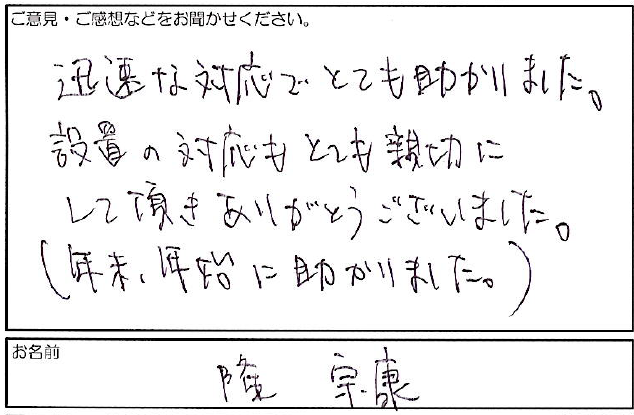 ご意見・ご感想などをお聞かせください。
迅速な対応でとても助かりました。
設置の対応もとても親切に
して頂きありがとうございました。
(年末、年始に助かりました。)
お名前
隆 宗康